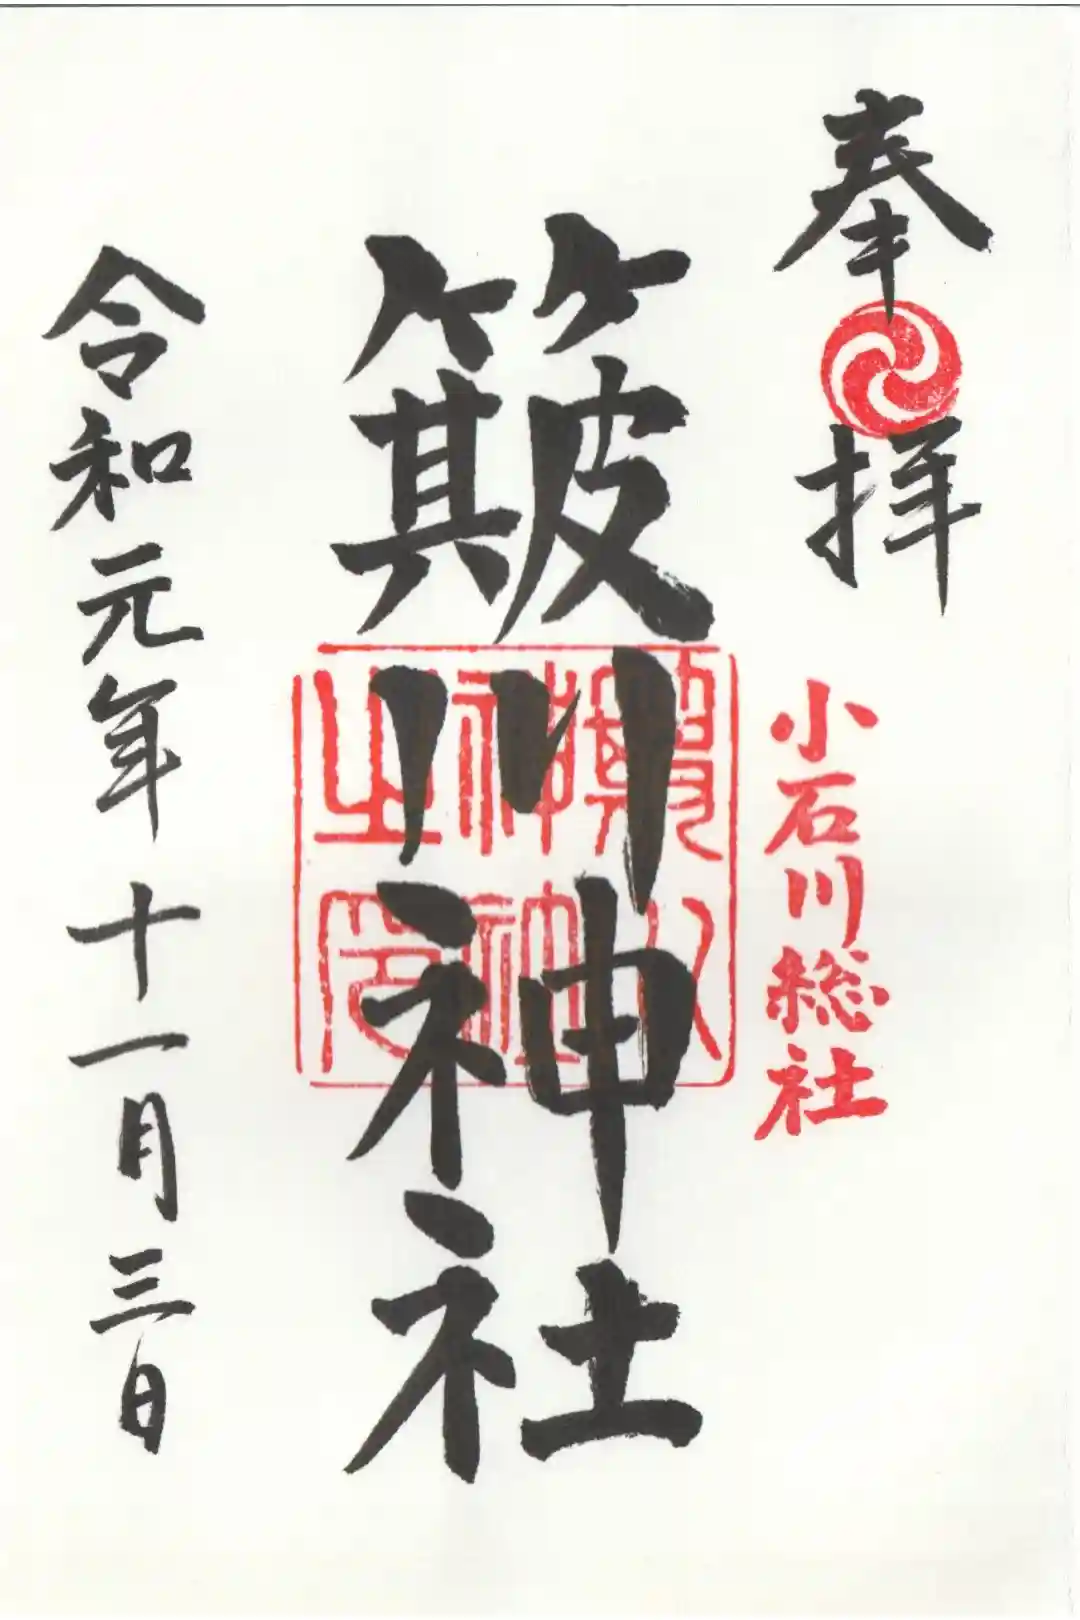 奉拝
小石川総社
簸川神社
簸川神社之印
令和元年十一月三日